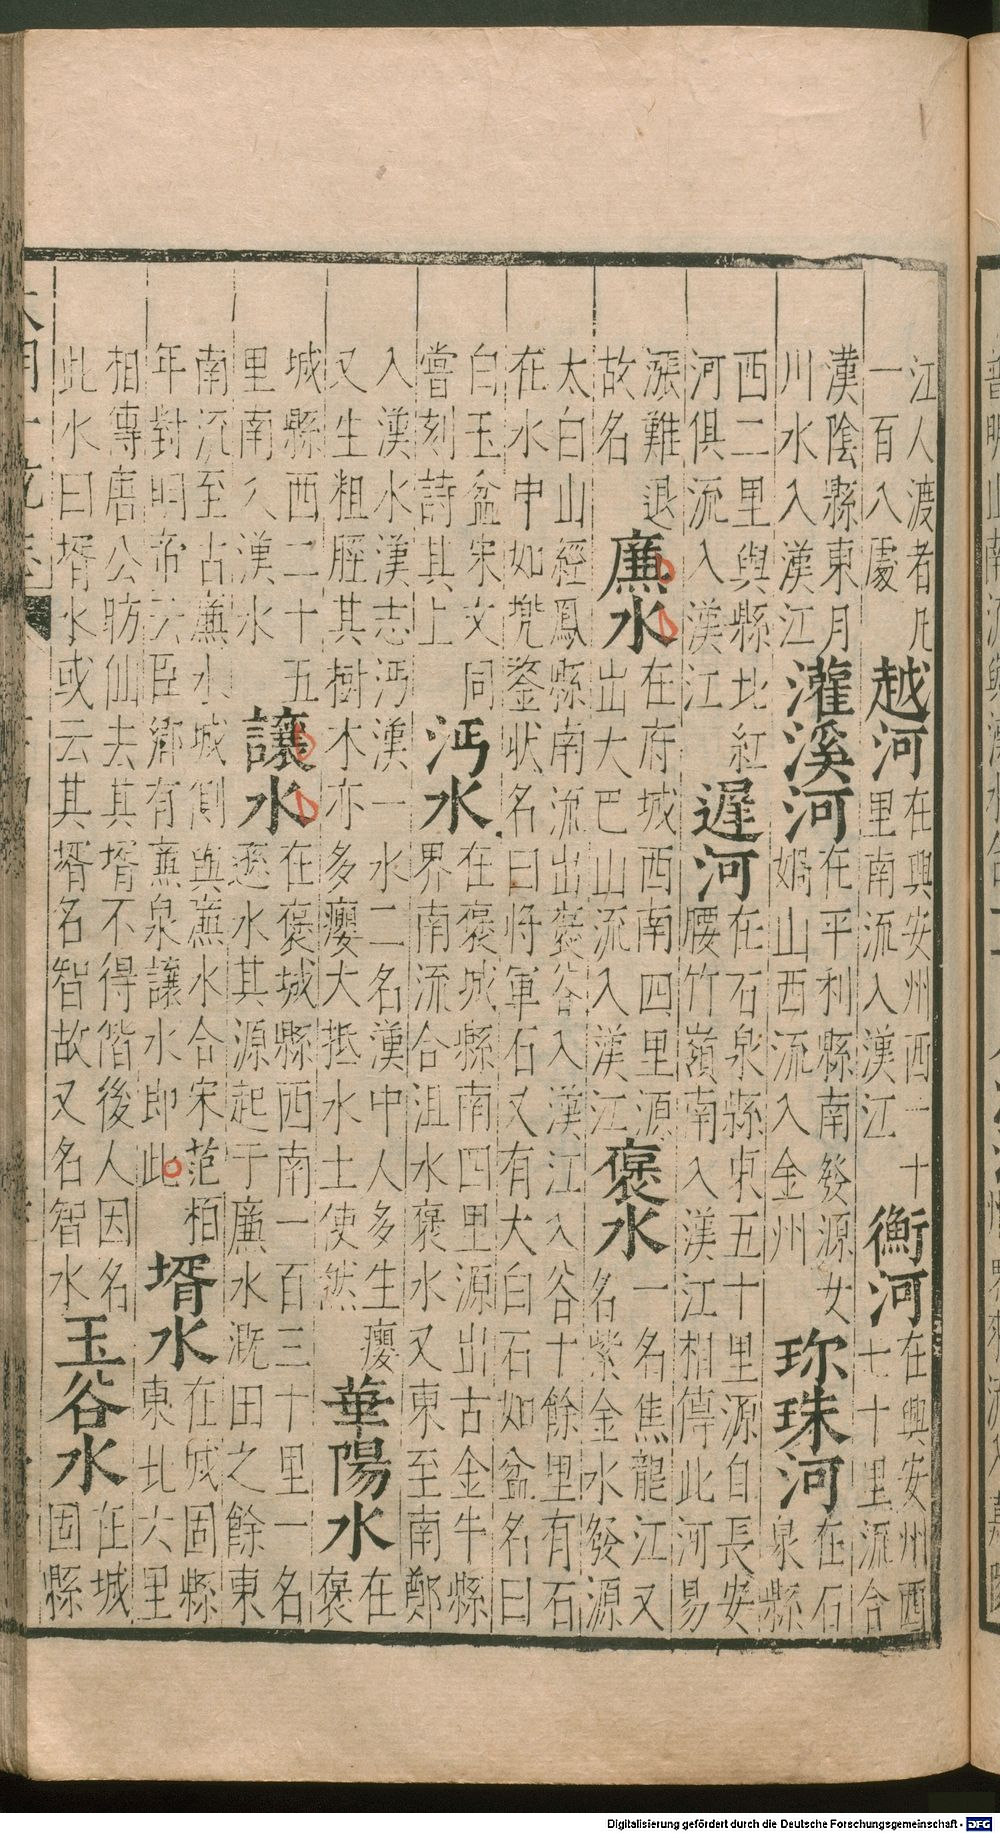 江人渡者凡
一百八處
越河
在興安州西一十
里南流入漢江
衡河
在興安州西
七十里流合
漢陰縣東月
川水入漢江
灌溪河
在平利縣南發源女
媧山西流入金州
珎珠河
在石
泉縣
西二里與縣北紅
河俱流入漢江
遲河
在石泉縣東五十里源自長安
腰竹嶺南入漢江相傳此河易
漲難退
故名
廉水
在府城西南四里源
出大巴山流入漢江
褒水
一名焦龍江又
名紫金水發源
太白山經鳳縣南流出褒谷入漢江入谷十餘里有石
在水中如兠鍪狀名曰将軍石又有大白石如盆名曰
白玉盆宋文同
嘗刻詩其上
沔水
在褒城縣南四里源出古金牛縣
界南流合沮水褒水又東至南鄭
入漢水漢志沔漢一水二名漢中人多生癭
又生粗脛其樹木亦多癭大抵水土使然
華陽水
在
褒
城縣西二十五
里南入漢水
讓水
在褒城縣西南一百三十里一名
遜水其源起于廉水溉田之餘東
南流至古廉水城側與廉水合宋范柏
年對明帝云臣鄉有廉泉讓水即此
壻水
在城固縣
東北六里
相傳唐公昉仙去其壻不得偕後人因名
此水曰壻水或云其壻名智故又名智水
玉谷水
在城
固縣
Digitalisierung gefördert durch die Deutsche Forschungsgemeinschaft - DFG